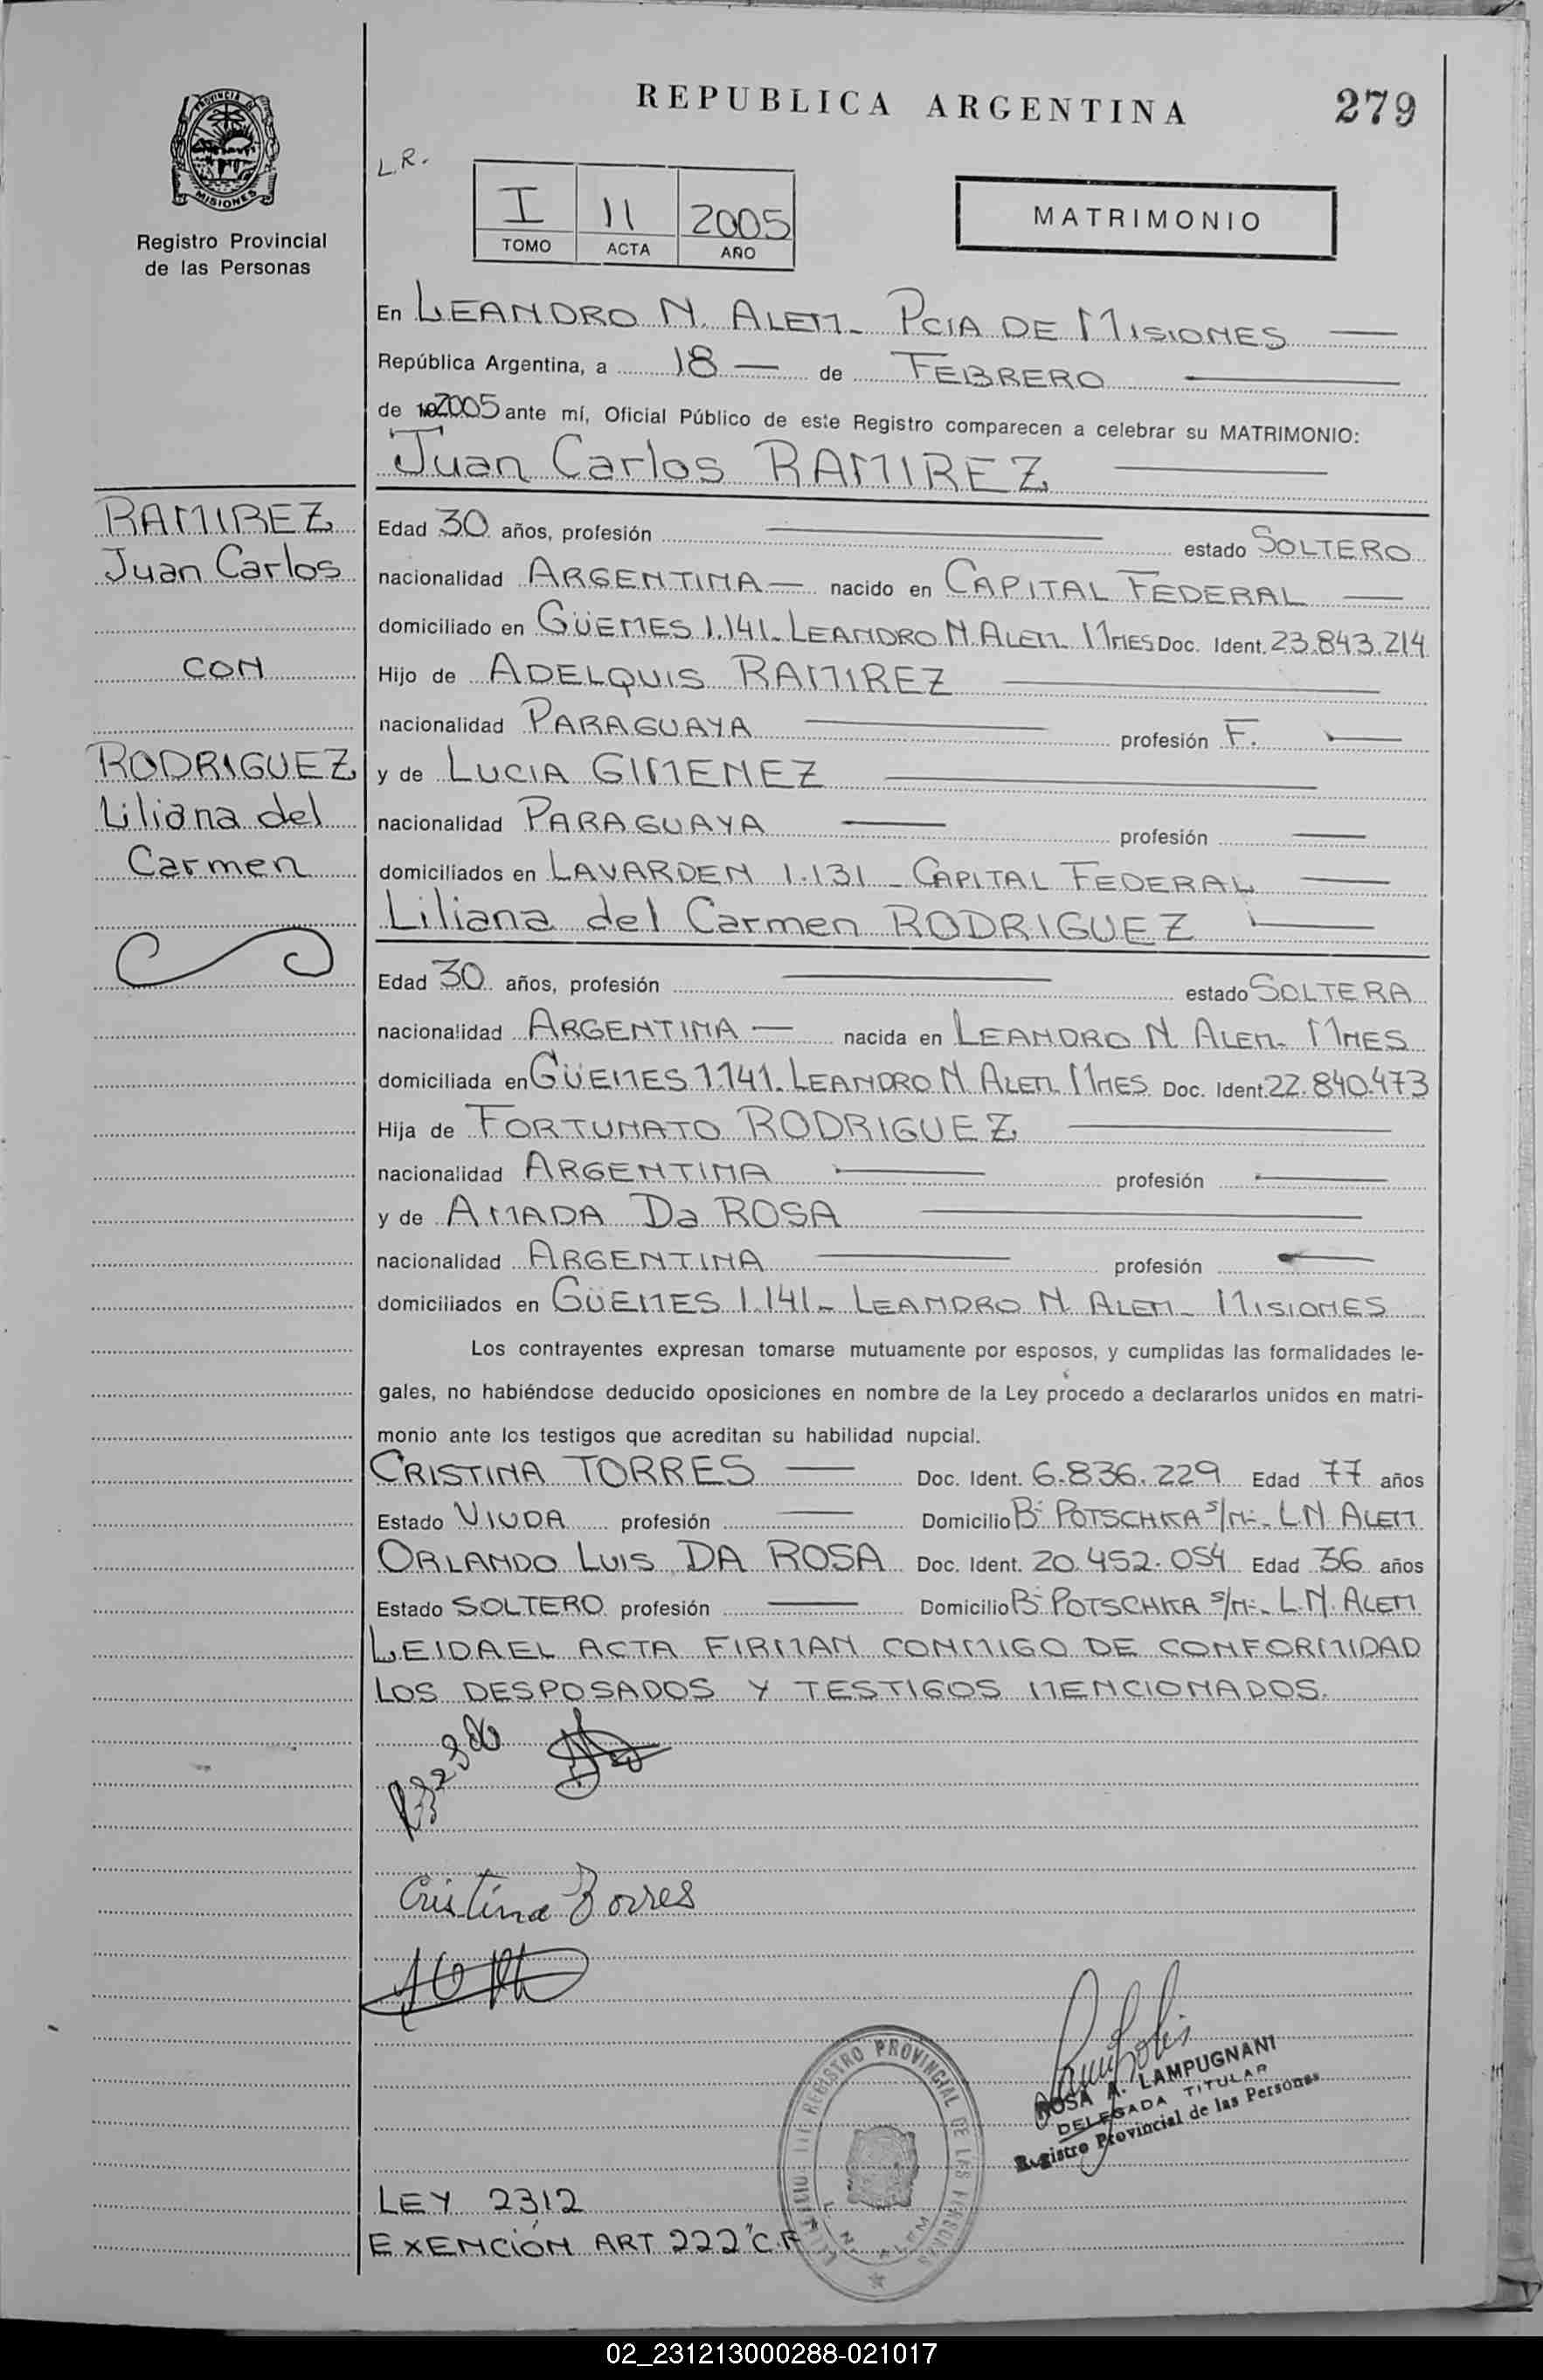 REPUBLICA ARGENTINA
279
PROVINCIA DE
MISIONES
Registro Provincial
de las Personas
L.R.
I 11 2005
TOMO ACTA AÑO
MATRIMONIO
En LEANDRO N. ALEM- PCIA DE MISIONES
República Argentina, a 18 de FEBRERO
de 2005 ante mí, Oficial Público de este Registro comparecen a celebrar su MATRIMONIO:
Juan Carlos RAMIREZ
RAMIREZ
Juan Carlos
CON
RODRIGUEZ
Liliana del
Carmen
Edad 30 años, profesión estado SOLTERO
nacionalidad ARGENTINA nacido en CAPITAL FEDERAL
domiciliado en GÜEMES 1.141- LEANDRO N ALEM MNES Doc. Ident. 23.843.214
Hijo de ADELQUIS RAMIREZ
nacionalidad PARAGUAYA profesión F.
y de LUCIA GIMENEZ
nacionalidad PARAGUAYA profesión
domiciliados en LAVARDEN 1.131 - CAPITAL FEDERAL
Liliana del Carmen RODRIGUEZ
Edad 30 años, profesión estado SOLTERA
nacionalidad ARGENTINA nacida en LEANDRO N ALEM- MNES
domiciliada en GÜEMES 1.141- LEANDRO N ALEM MNES Doc. Ident. 22.840.473
Hija de FORTUNATO RODRIGUEZ
nacionalidad ARGENTINA profesión
y de AMADA Da ROSA
nacionalidad ARGENTINA profesión
domiciliados en GÜEMES 1.141- LEANDRO N ALEM- MISIONES
Los contrayentes expresan tomarse mutuamente por esposos, y cumplidas las formalidades le-
gales, no habiéndose deducido oposiciones en nombre de la Ley procedo a declararlos unidos en matri-
monio ante los testigos que acreditan su habilidad nupcial.
CRISTINA TORRES Doc. Ident. 6.836.229 Edad 77 años
Estado VIUDA profesión Domicilio Bº POTSCHKA S/Nº- L.N ALEM
ORLANDO LUIS DA ROSA Doc. Ident. 20.452.054 Edad 36 años
Estado SOLTERO profesión Domicilio Bº POTSCHKA S/Nº- L.N. ALEM
LEIDA EL ACTA FIRMAN CONMIGO DE CONFORMIDAD
LOS DESPOSADOS Y TESTIGOS MENCIONADOS.
Cristina Torres
REGISTRO PROVINCIAL DE LAS PERSONAS
L. N. ALEM
ROSA A. LAMPUGNANI
DELEGADA TITULAR
Registro Provincial de las Personas
LEY 2312
EXENCIÓN ART 222"C.F
02_231213000288-021017